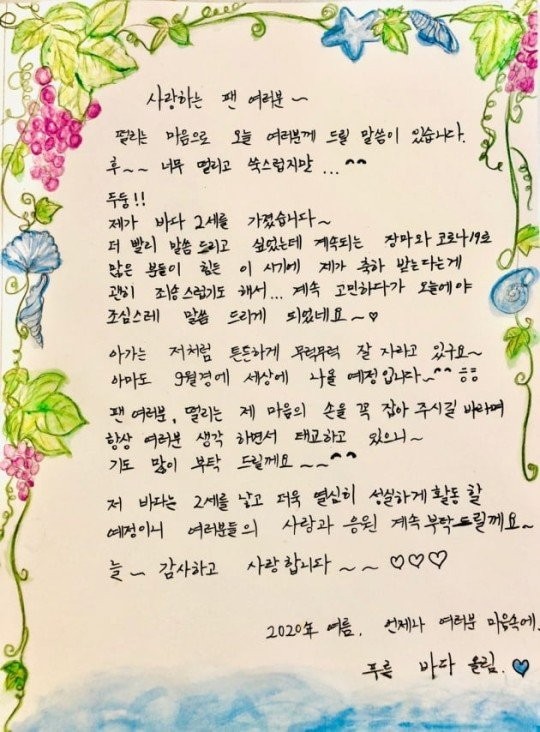 사랑하는 팬 여러분~
떨리는 마음으로 오늘 여러분께 드릴 말씀이 있습니다.
후~~ 너무 떨리고 쑥스럽지만...^^
두둥!!
제가 바다 2세를 가졌습니다~
더 빨리 말씀 드리고 싶었는데 계속되는 장마와 코로나19로
많은 분들이 힘든 이 시기에 제가 축하 받는다는게
괜히 죄송스럽기도 해서... 계속 고민하다가 오늘에야
조심스레 말씀 드리게 되었네요~♡
아가는 저처럼 튼튼하게 무럭무럭 잘 자라고 있구요~
아마도 9월경에 세상에 나올 예정입니다~^^ ㅎㅎ
팬 여러분, 떨리는 제 마음의 손을 꼭 잡아 주시길 바라며
항상 여러분 생각 하면서 태교하고 있으니~
기도 많이 부탁 드릴께요~~^^
저 바다는 2세를 낳고 더욱 열심히 성실하게 활동 할
예정이니 여러분들의 사랑과 응원 계속 부탁드릴께요~
늘~ 감사하고 사랑합니다~~♡♡♡
2020年 여름. 언제나 여러분 마음속에.
푸른 바다 올림.♥